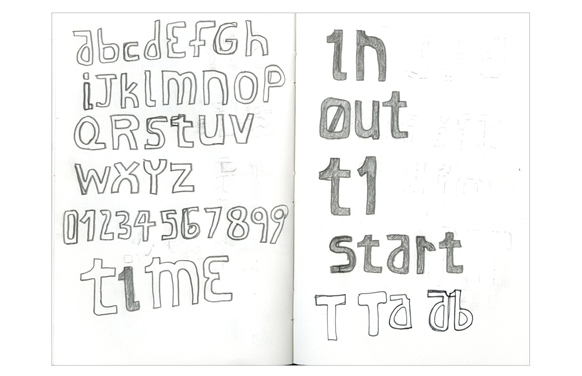 abcdEfGh
iJklmnoP
QRstuV
WXYZ
01234567899
timE
in
out
t1
start
T Ta ab